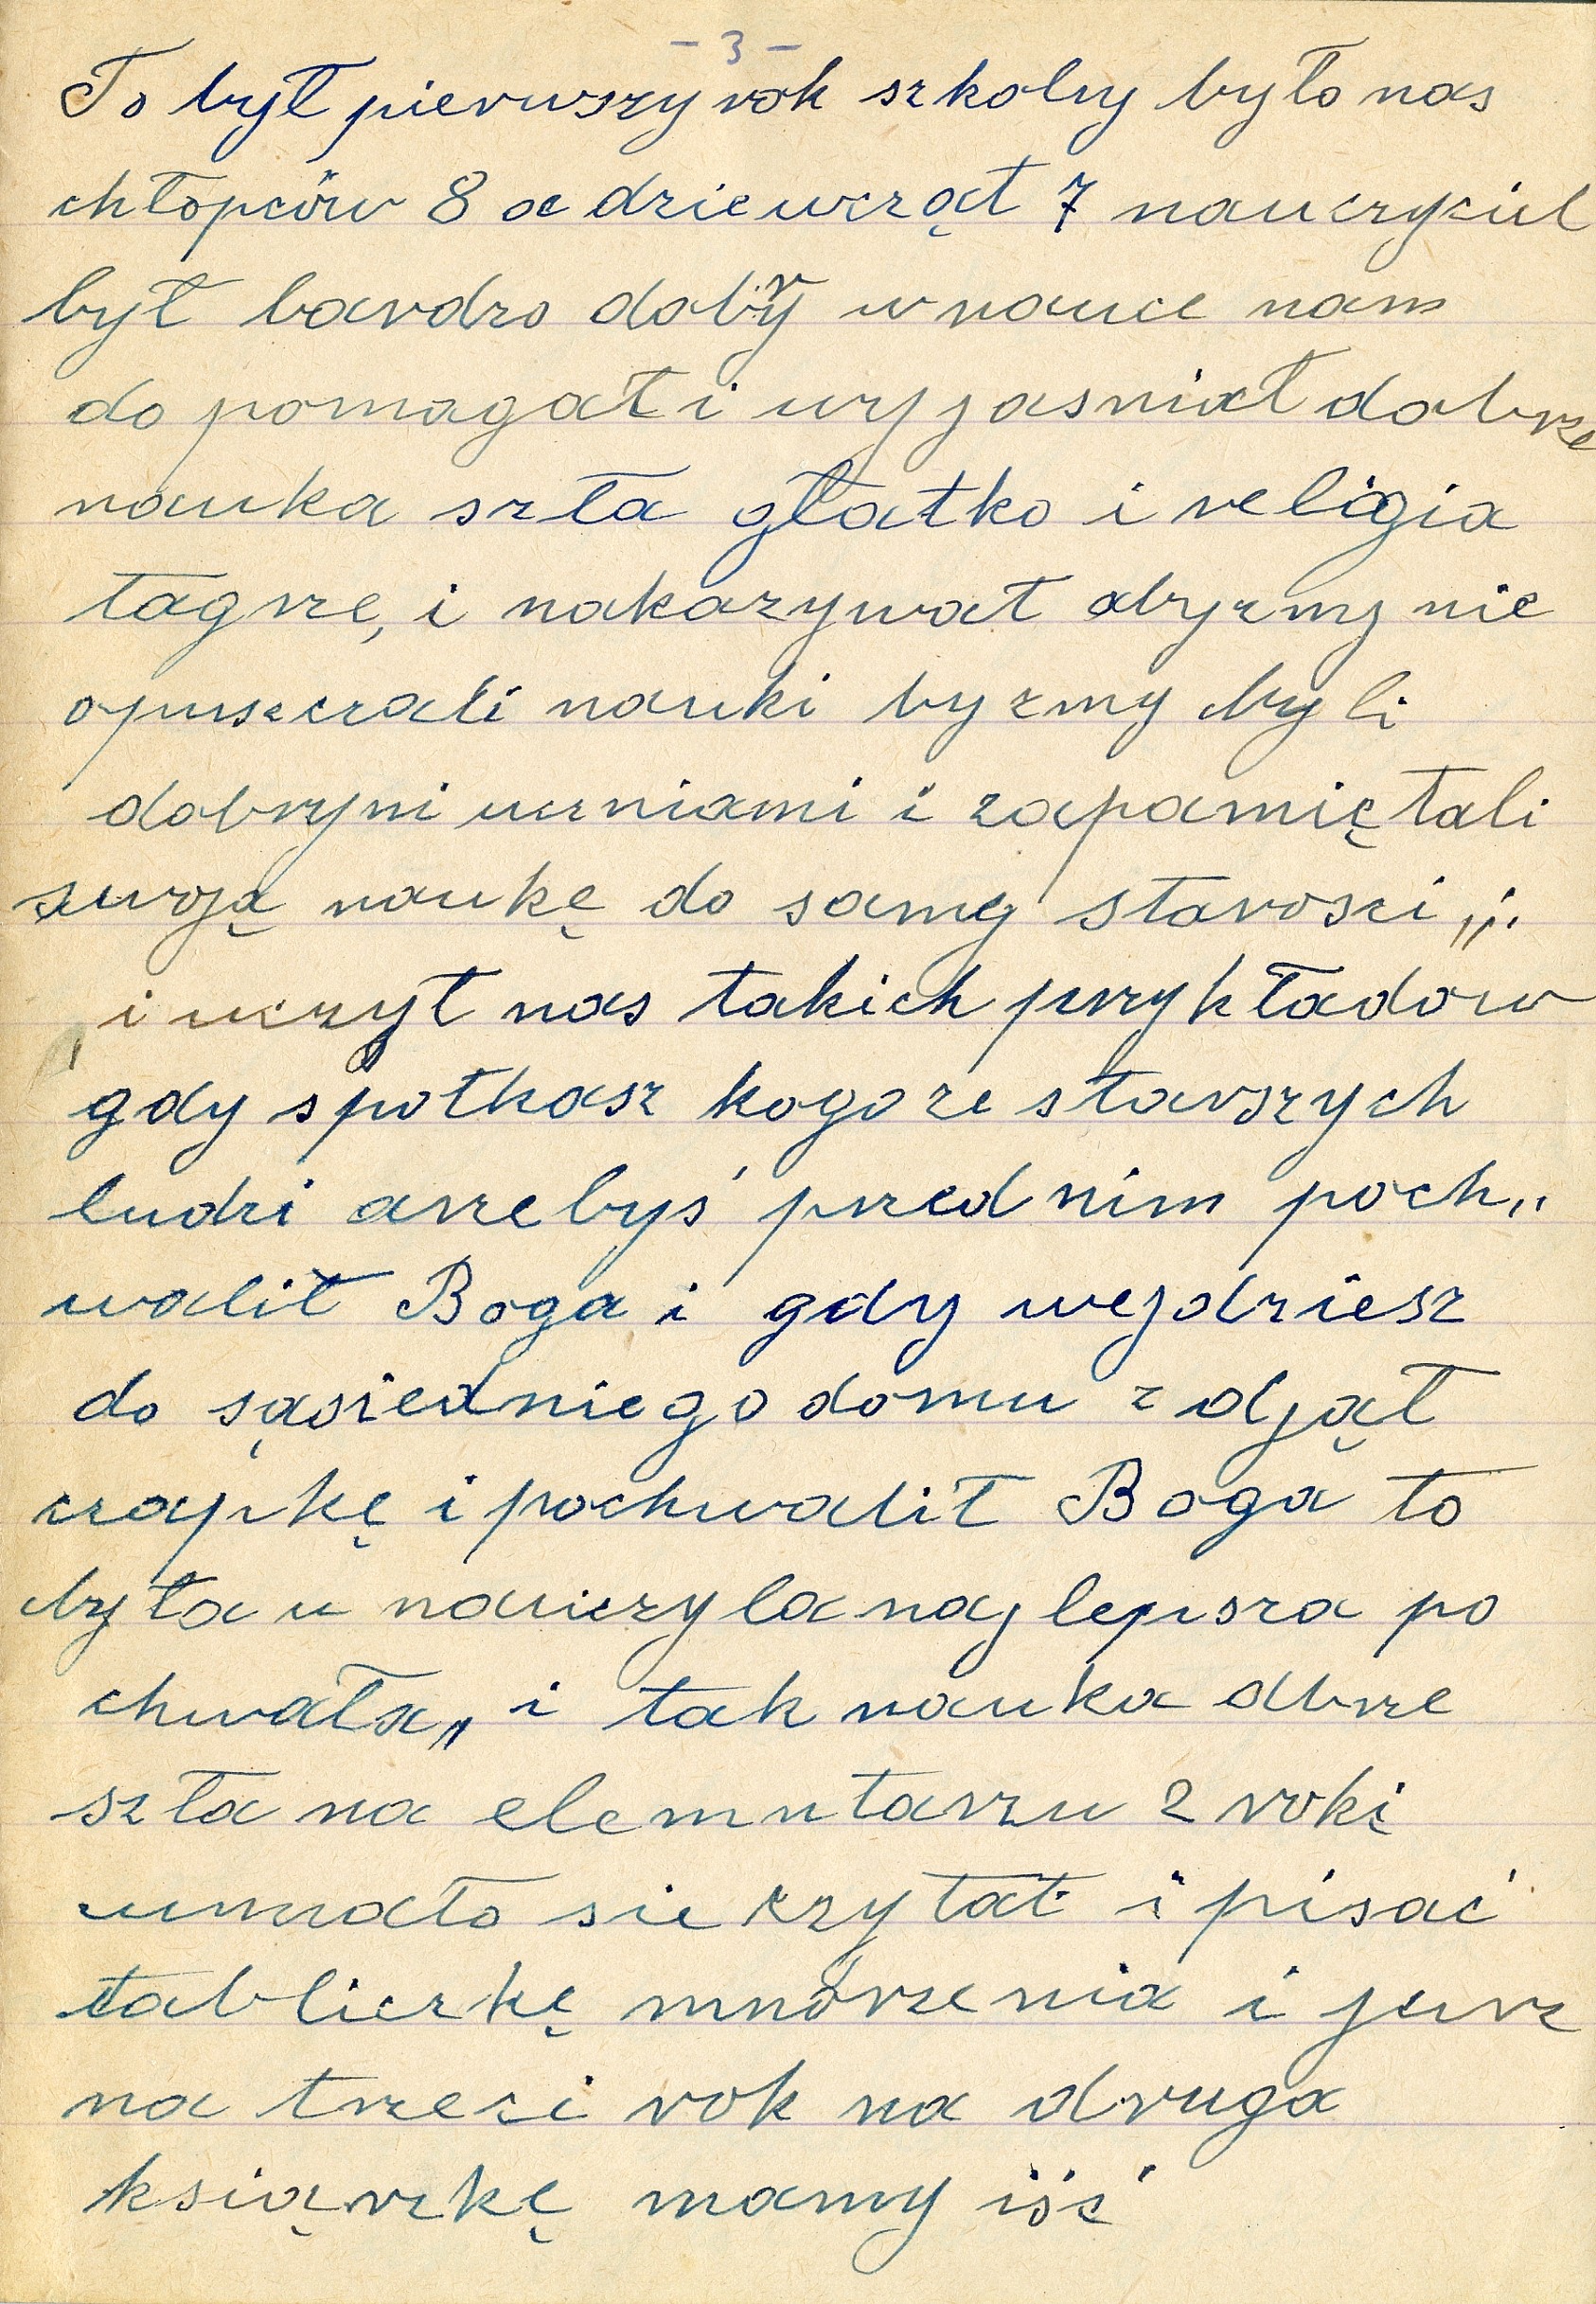 - 3 -
To był pierwszy rok szkolny było nas
chłopców 8 a dziewcząt 7 nauczyciel
był bardzo dobry w nauce nam
do pomagał i wyjasniał dobrze
nauka szła głatko i religia
tagrze, i nakazywał abyzmy nie
opuszczali nauki byzmy byli
dobrymi uczniami i zapamiętali
swoją naukę do samej starosci „.
i uczył nas takich przykładow
gdy spotkasz kogoze starszych
ludzi arzebyś przed nim poch„
walił Boga i gdy wejdziesz
do sąsiedniego domu zdjął
czapkę i pochwalił Boga to
była u nauczyla najlepsza po
chwała„ i tak nauka dbrze
szła na elemntarzu 2 roki
umiało sie czytat i pisać
tabliczkę mnórzenia i jurz
na trzeci rok na druga
ksiąrzkę mamy iść